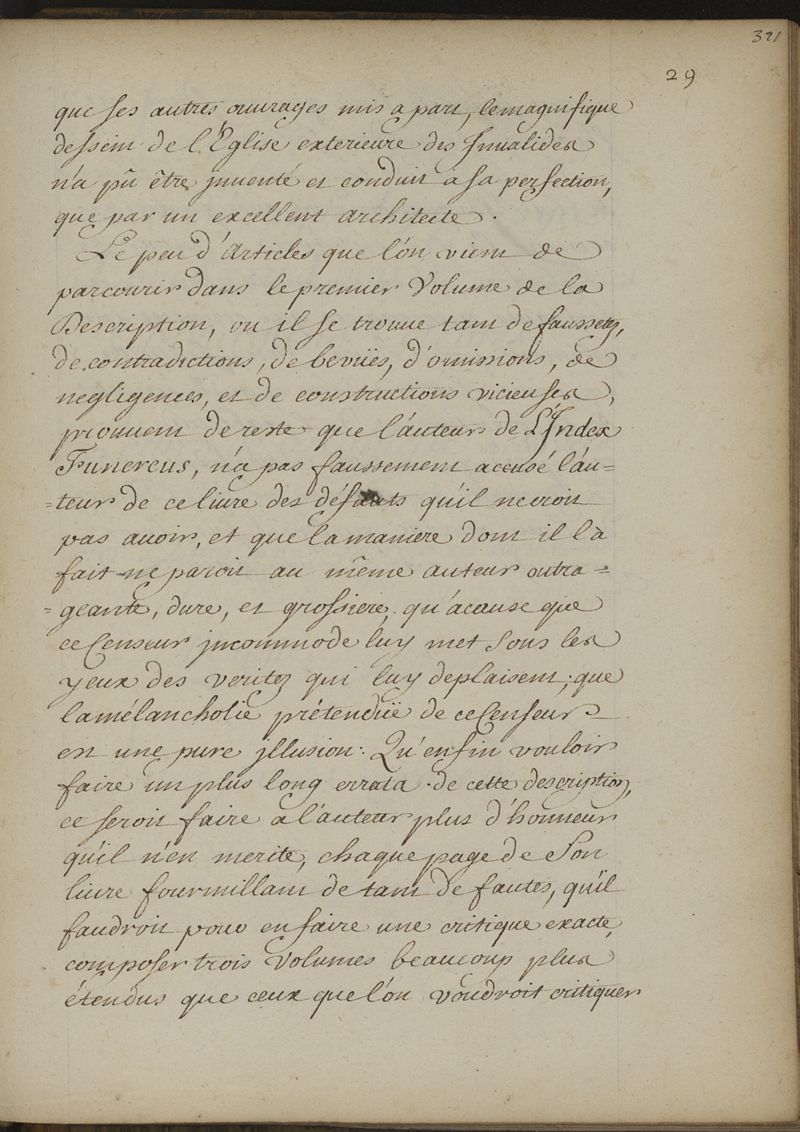 321
29
que ses autres ouurages mis a part, le magnifique
dessein de l'Église exterieure des Inualides
n'a pû être jnuenté et conduit à sa perfection,
que par un excellent architecte.
Le peu d'Articles que l'on vient de
parcourir dans le premier Volume de la
Description, ou il se trouue tant de faussetez,
de contradictions, de beviies, d'omissions, de
negligences, et de constructions vicieuses,
prouuent de reste que l'auteur de L'Index
Funereus, n'a pas faussement accusé l'au=
=teur de ce liure des défauts qu'il ne croit
pas auoir, et que la maniere dont il l'a
fait ne paroit au même auteur outra=
=geante, dure, et grossiere, qu'acause que
ce Censeur jncommode luy met sous les
yeux des veritez qui luy deplaisent; que
la mélancholie prétendüe de ce Censeur
est une pure jllusion: Qu'enfin vouloir
faire un plus long errata de cette description,
ce seroit faire a l'auteur plus d'honneur
qu'il n'en merite, chaque page de Son
liure fourmillant de tant de fautes, qu'il
faudroit pour en faire une critique exacte,
composer trois Volumes beaucoup plus
étendus que ceux que l'on voudroit critiquer